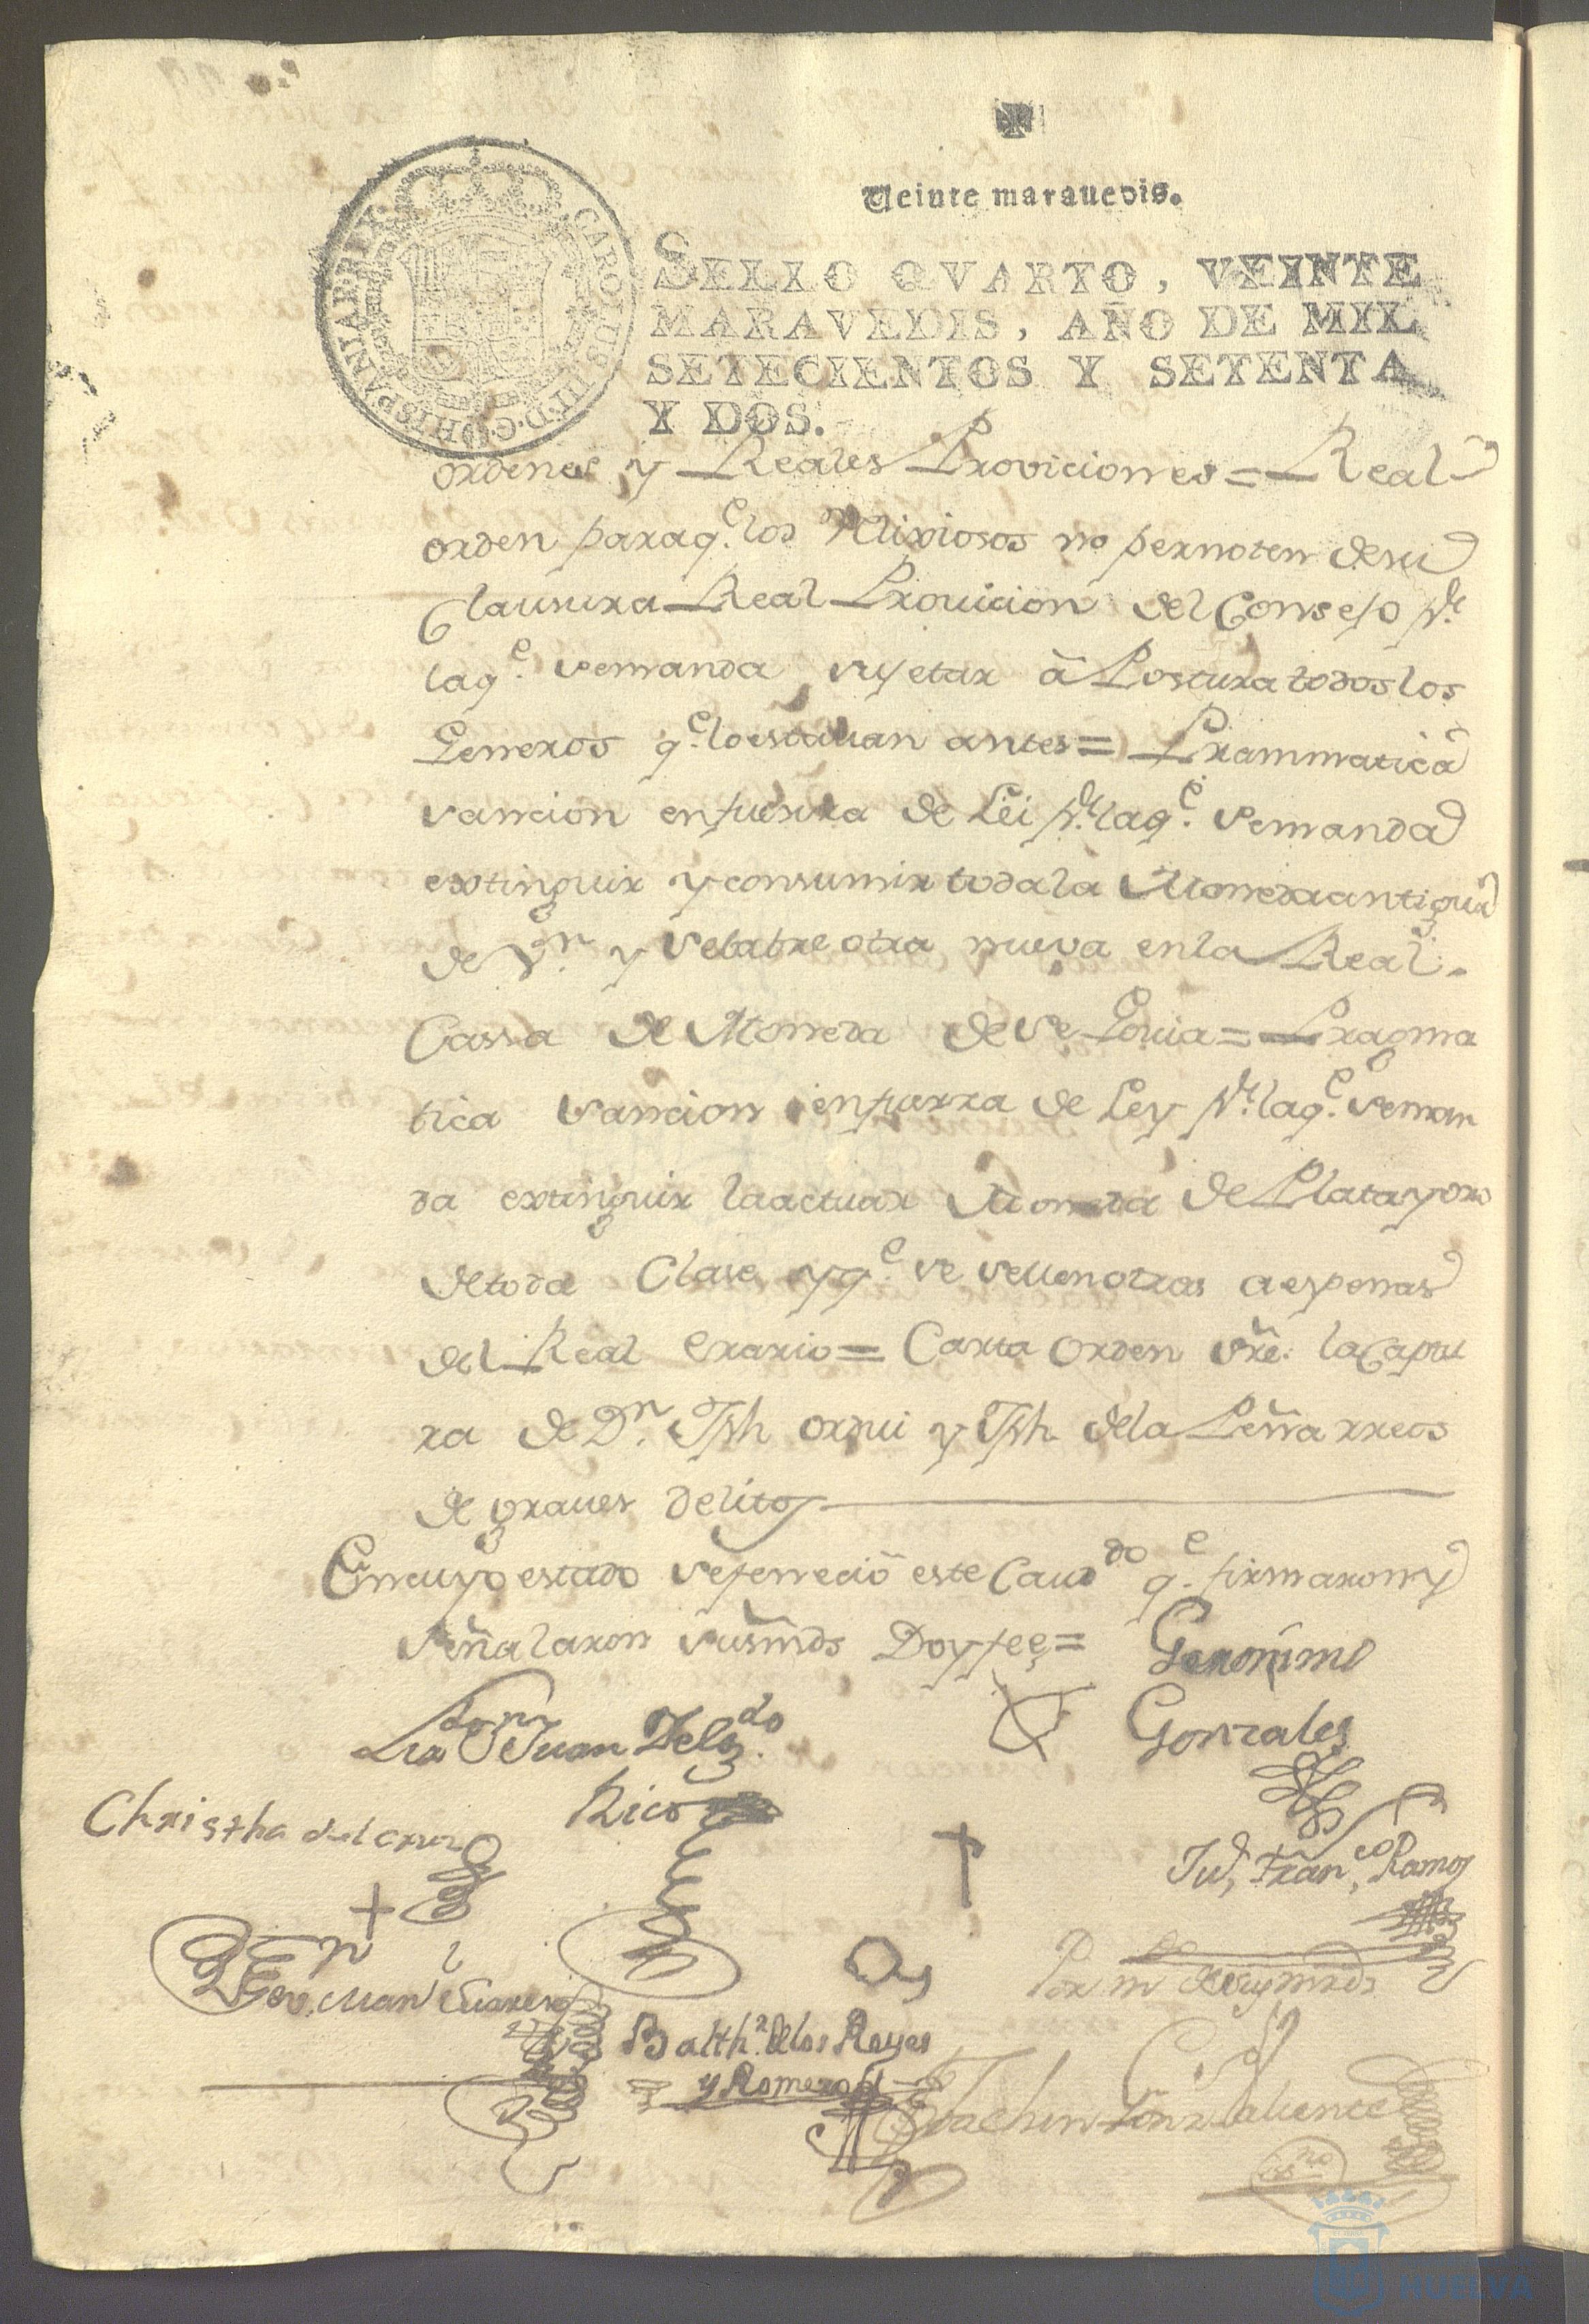 Veinte marauedis.
SELLO QVARTO, VEINTE
MARAVEDIS, AÑO DE MIL
SETECIENTOS Y SETENTA
Y DOS.
CAROLUS III D.G. HISPANIAR. REX
ordenes y Reales Proviciones = Real
orden paraq.e los Relixiosos no pernoten de su
Clausura Real Prouicion del Consejo pr.
laq.e semanda sujetar â Postura todos los
Generos q.e lo estauan antes = Prammatica
sancion enfuersa de Lei pr. laq.e semanda
extinguir y consumir toda la Moneda antigua
de Vn. y se labre otra nueva en la Real
Cassa de Moneda de Segouia = Pragma
tica sancion enfuerza de Ley pr. laq.e seman
da extinguir la actual Moneda de Plata y oro
de toda Clase y q.e se sellen otras a espensas
del Real Erario = Carta Orden sre. la Captu
ra de Dn. Jph orqui y Jph de la Peña rreos
de graues delitos
En cuyo estado sefenecio este Caudo q.e firmaron y
señalaron susmds Doy fee =
Geronimo
Gonzales
Lizdo Dn Juan Delgdo.
Rico
Christha del
Jud, Fran,co Ramos
Dn Gev. Manl Suares
Balthr. de los Reyes
y Romero
Por m do. de sus mrds
Joachin
essno
HUELVA